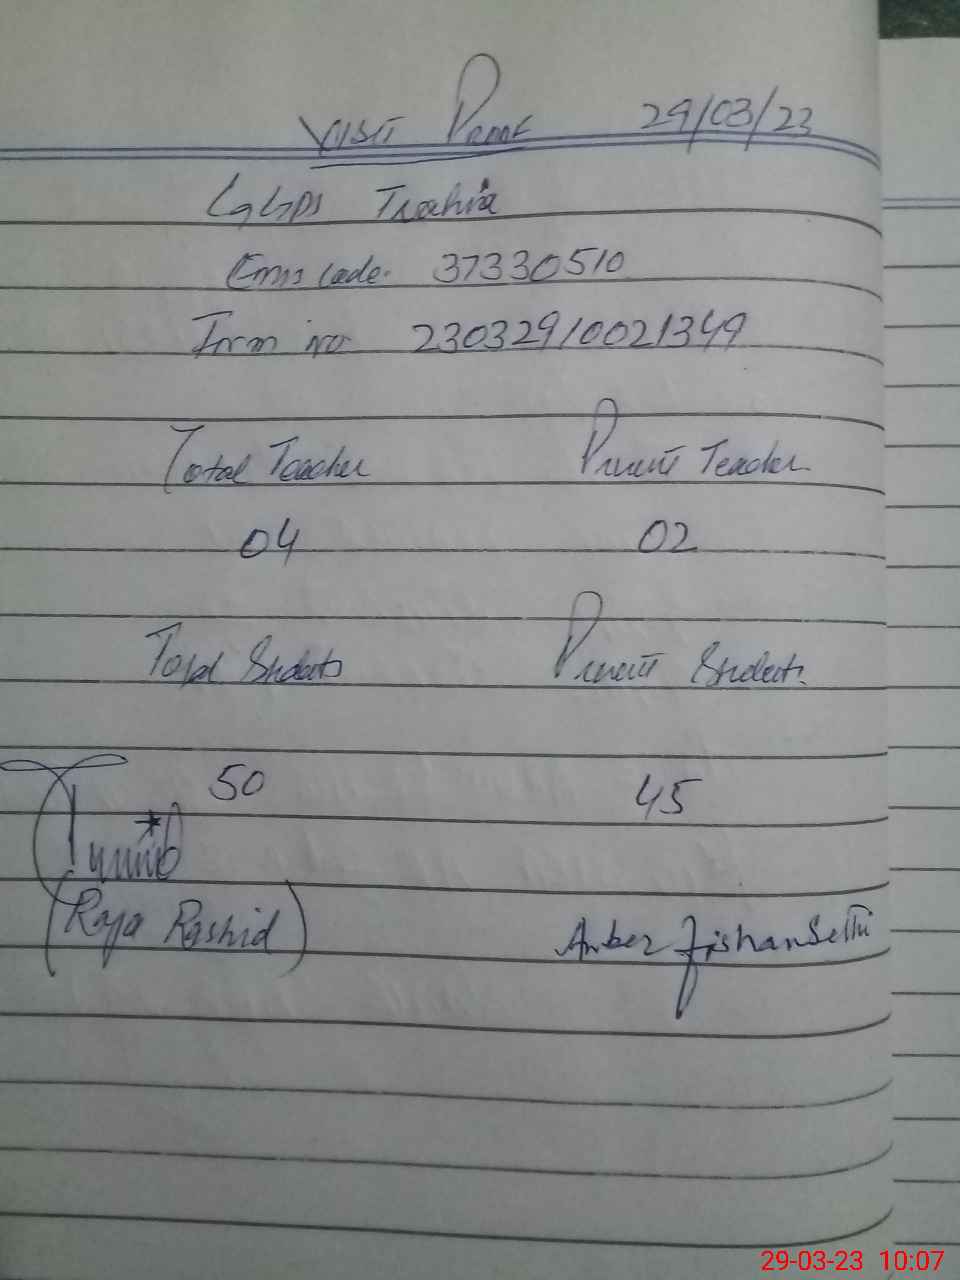 Visit Proof 29/03/23
GGPS Trahia
Emis code. 37330510
Form no 23032910021349
Total Teacher Present Teacher
04 02
Total Students Present Students
50 45
(Raja Rashid) Amber Zishan Sethi
29-03-23 10:07